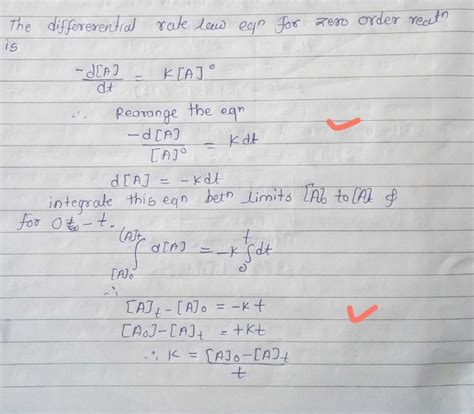 The differerential rate law eqn for zero order reatn
is
-d[A]/dt = K[A]°
∴ Rearange the eqn
-d[A]/[A]° = kdt
d[A] = -kdt
integrate this eqn betn limits [A]o to [A]t &
for 0 to - t.
∫[A]o[A]t d[A] = -k ∫0t dt
∴
[A]t - [A]o = -kt
[Ao] - [A]t = +kt
∴ K = [A]o - [A]t / t